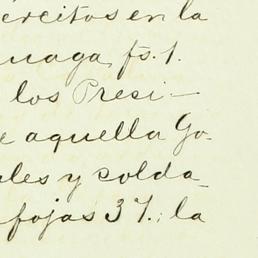 ercitos en la
uaga, fs. 1.
los Presi-
e aquella Go-
les y solda-
fojas 37.; la